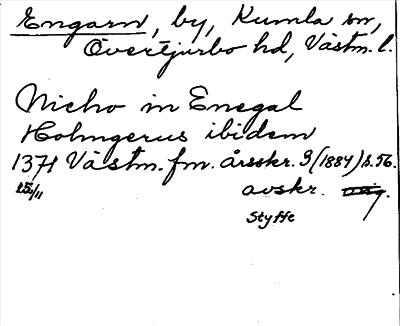 Engarn, by, Kumla sn,
Övertjurbo hd, Västm. l.
Nicho in Enegal
Holmgerus ibidem
1371 Västm. fm. årsskr. 9 (1884) s. 56.
25/11 avskr.
Styffe